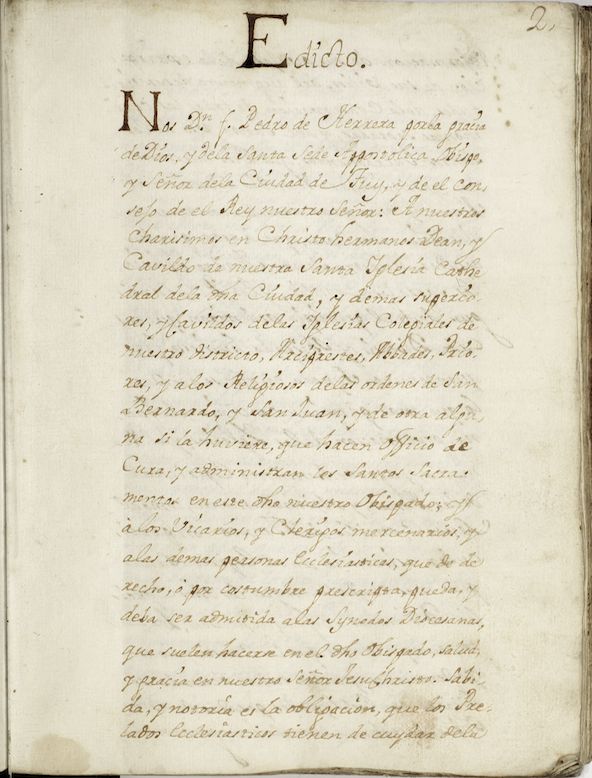 2,
Edicto.
Nos Dn. f. Pedro de Herrera por la gracia
de Dios, y dela Santa Sede Appostolica Obispo,
y Señor dela Ciudad de Tuy, y de el con,
sejo de el Rey nuestro Señor: A nuestros
charisimos en Christo hermanos Dean, y
Cavildo de nuestra Santa Iglesia Cathe
dral dela dha Ciudad, y demas superio,
res, y Cavildos delas Iglesias Colegiales de
nuestro districto, Arciprestes, Abbades, Prio,
res, y alos Religiosos delas ordenes de San
Bernardo, y San Juan, y de otra algu,
na si la huviere, que hacen officio de
Cura, y administran los Santos Sacra
mentos en este dho nuestro Obispado; y
à los Vicarios, y Clerigos mercenarios, y
alas demas personas Ecclesiasticas, que de de
recho, ò por costumbre prescripta, pueda, y
deba ser admitida alas Synodos Diocesanas,
que suelen hacerse en el dho Obispado, salud,
y gracia en nuestro Señor Jesu Christo. Sabi,
da, y notoria es la obligacion, que los Pre,
lados Ecclesiasticos tienen de cuydar dela